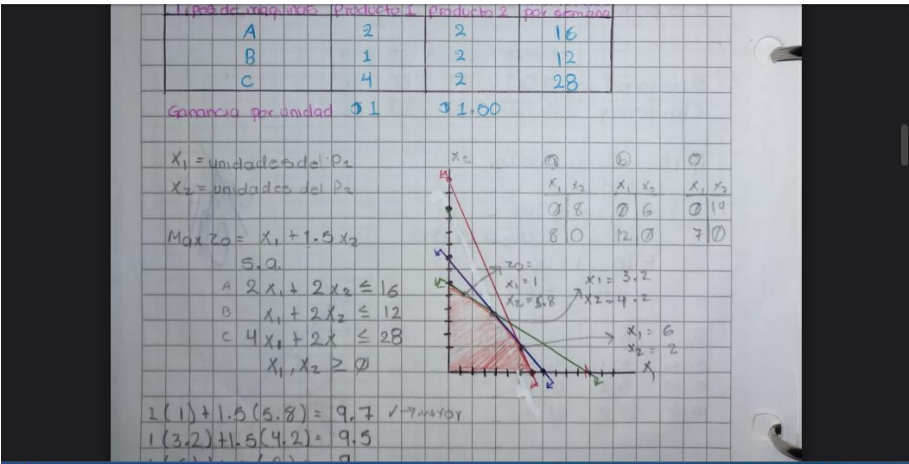 Tipos de maquinas Producto 1 Producto 2 por semana
A 2 2 16
B 1 2 12
C 4 2 28
Ganancia por unidad $1 $1.50
X1 = unidades del P1
X2 = unidades del P2
Max Z0 = X1 + 1.5 X2
s.a.
A 2X1 + 2X2 ≤ 16
B X1 + 2X2 ≤ 12
C 4X1 + 2X ≤ 28
X1, X2 ≥ 0
X2
X1 X2 X1 X2 X1 X2
0 8 0 6 0 14
8 0 12 0 7 0
Z0=
X1=1
X2=5.8
X1= 3.2
X2=4.2
X1= 6
X2= 2
X1
1(1)+1.5(5.8)= 9.7 mayor
1(3.2)+1.5(4.2)= 9.5